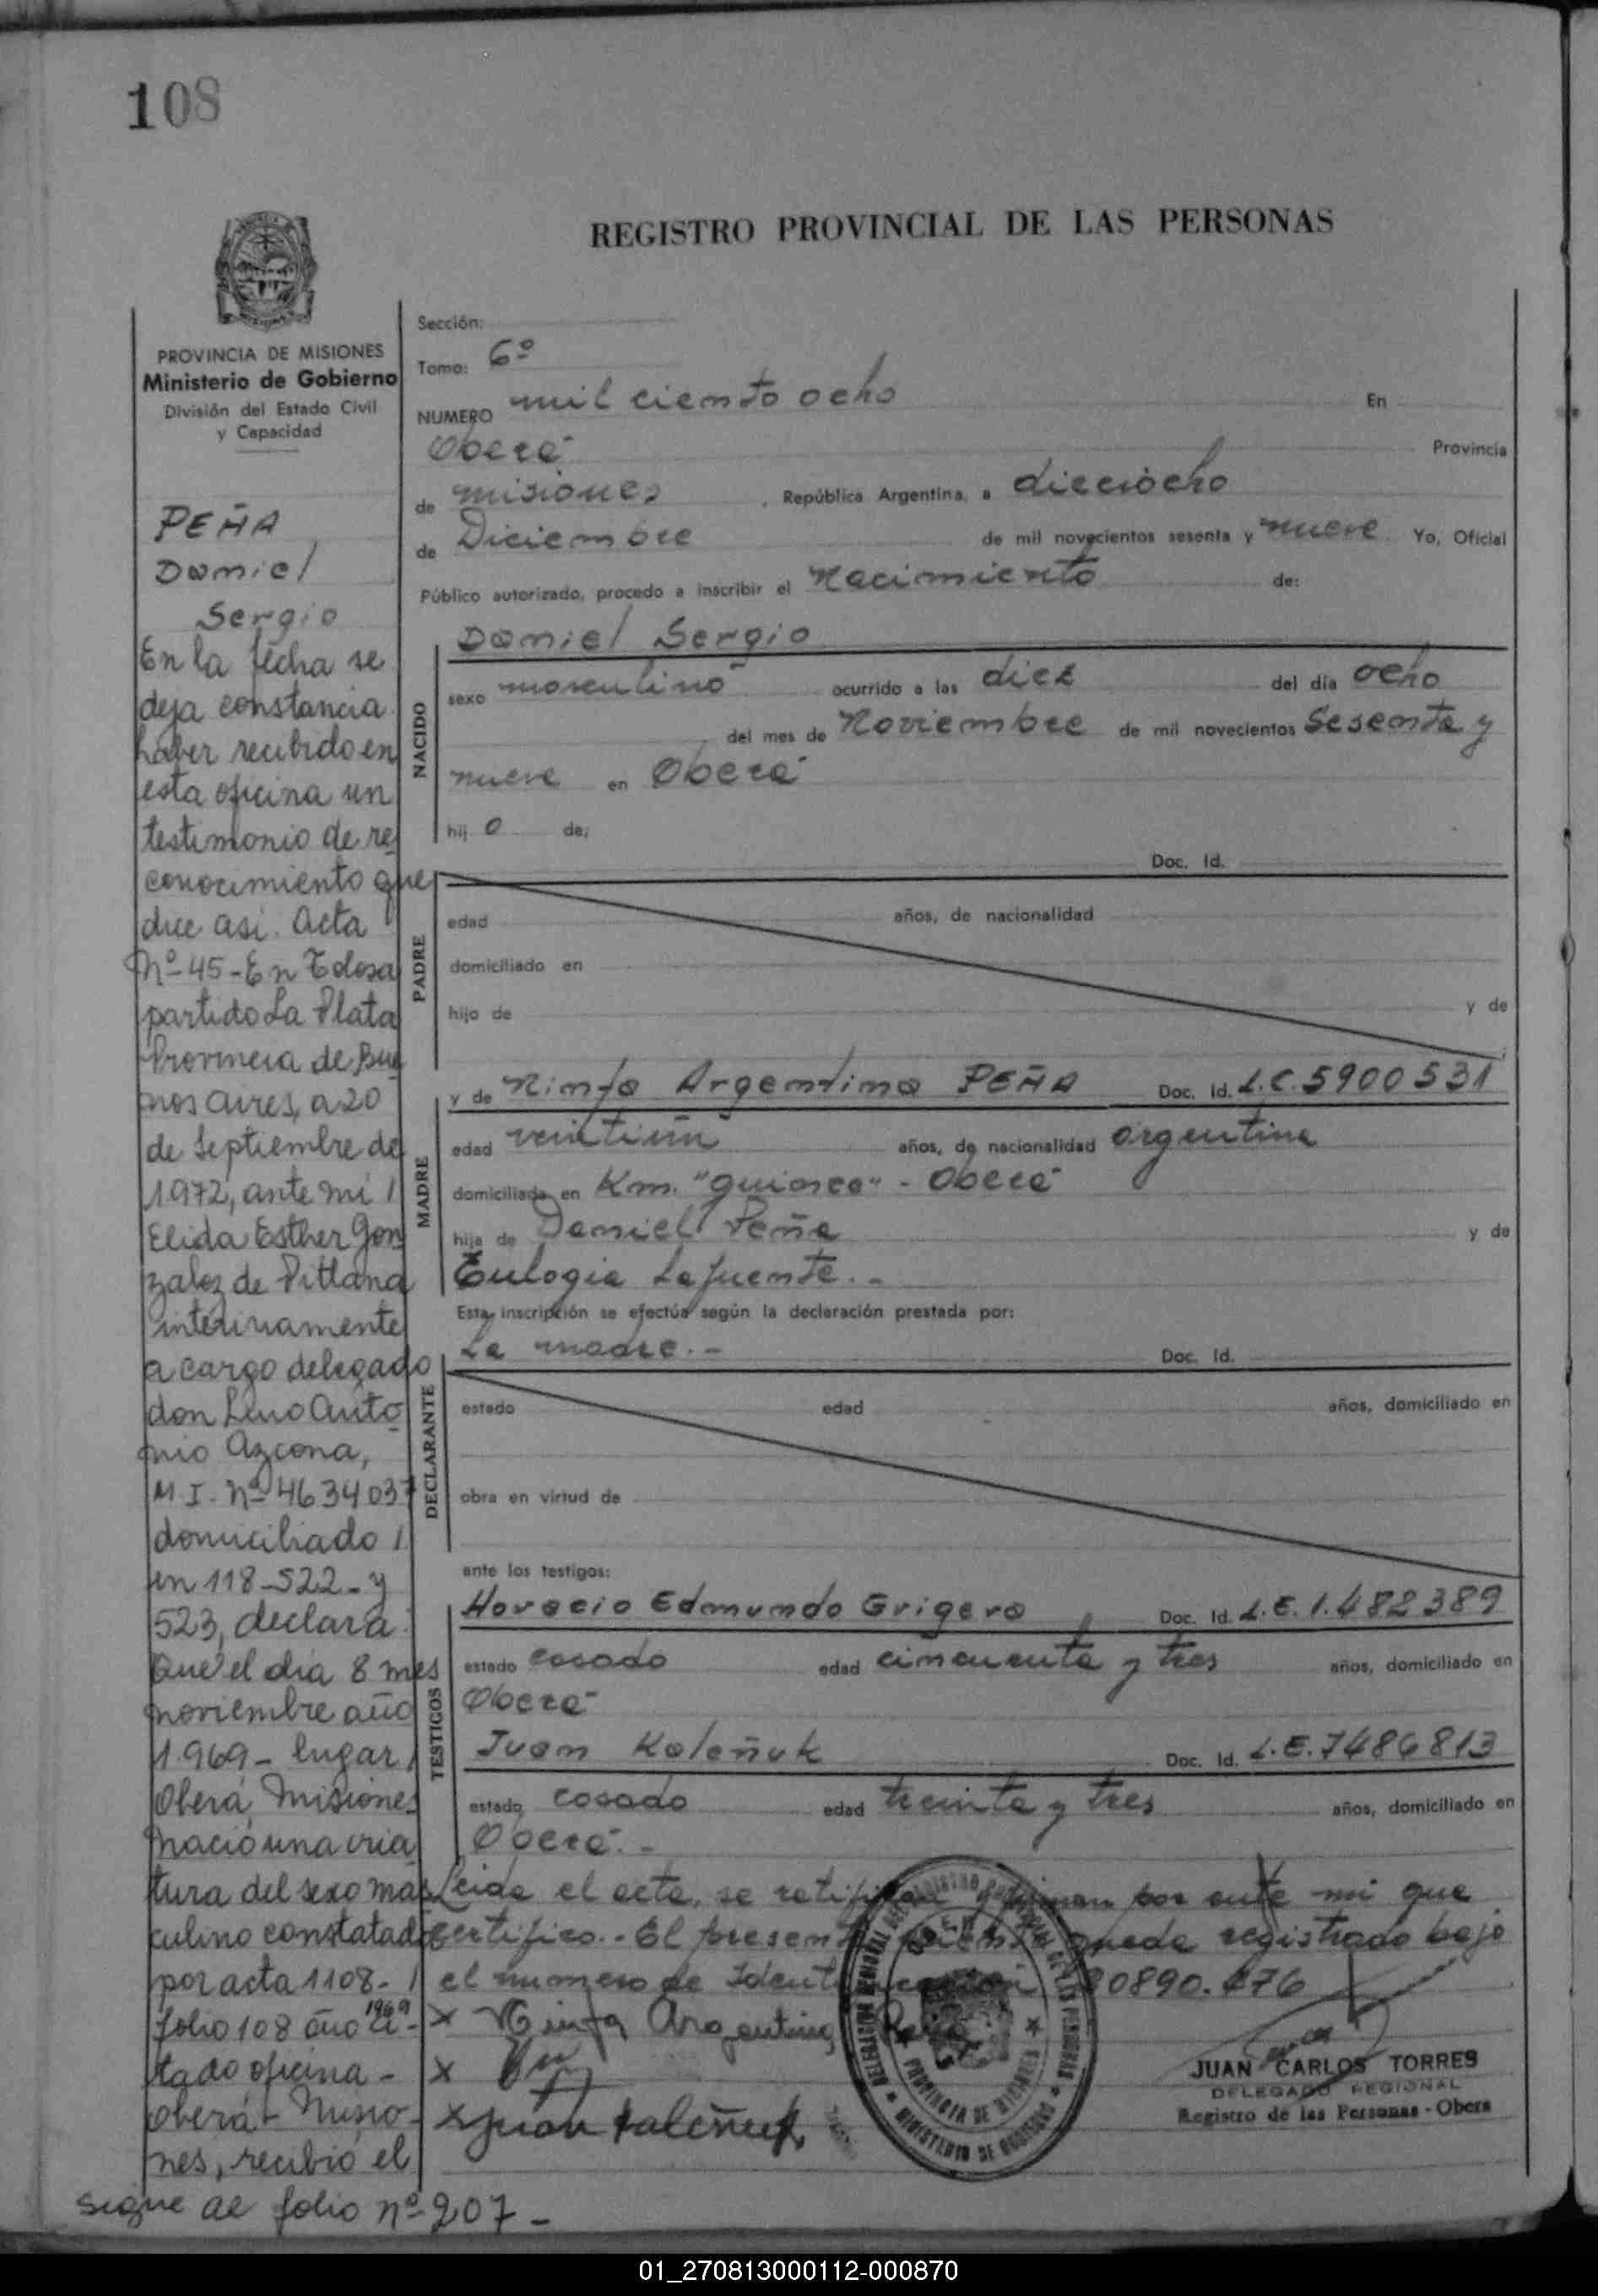 108
REGISTRO PROVINCIAL DE LAS PERSONAS
PROVINCIA DE MISIONES
Ministerio de Gobierno
División del Estado Civil
y Capacidad
PEÑA
Daniel
Sergio
En la fecha se
deja constancia
haber recibido en
esta oficina un
testimonio de re
conocimiento que
dice asi. Acta
Nº-45-En Tolosa
partido La Plata
Provincia de Bue
nos aires, a 20
de Septiembre de
1972, ante mi /
Elida Esther Gon
zalez de Pitlana
interinamente
a cargo delegado
don Lino Anto
nio Azcona,
M.I. Nº 4634037
domiciliado /
en 118-522-y
523, declara:
Que el dia 8 mes
noviembre año
1.969- lugar /
Oberá, Misiones
nació una cria
tura del sexo mas
culino constatado
por acta 1108- /
folio 108 año 1969 ci-
tado oficina -
Oberá- Misio-
nes, recibió el
sigue al folio nº 207-
Sección:
Tomo: 6º
NUMERO mil ciento ocho En
Oberá Provincia
de misiones, República Argentina, a dieciocho
de Diciembre de mil novecientos sesenta y nueve Yo, Oficial
Público autorizado, procedo a inscribir el Nacimiento de:
NACIDO
Daniel Sergio
sexo masculino ocurrido a las diez del día ocho
del mes de Noviembre de mil novecientos Sesenta y
nueve en Oberá
hij o de:
Doc. Id.
PADRE
edad años, de nacionalidad
domiciliado en
hijo de y de
MADRE
y de Ninfa Argentina PEÑA Doc. Id. L.C. 5900531
edad veintiún años, de nacionalidad argentina
domiciliada en Km. "quiosco" - Oberá
hija de Daniel Peña y de
Eulogia Lafuente.-
Esta inscripción se efectúa según la declaración prestada por:
La madre.- Doc. Id.
DECLARANTE
estado edad años, domiciliado en
obra en virtud de
ante los testigos:
TESTIGOS
Horacio Edmundo Grigera Doc. Id. L.E. 1.482389
estado casado edad cincuenta y tres años, domiciliado en
Oberá-
Juan Koleñuk Doc. Id. L.E. 7486813
estado casado edad treinta y tres años, domiciliado en
Oberá.-
Leida el acta, se ratifican y firman por ante mi que
certifico.- El presente queda registrado bajo
el numero de 20890.476
x Ninfa Argentina Peña
x
x Juan Kaleñuk
MINISTERIO DE GOBIERNO
PROVINCIA DE MISIONES
JUAN CARLOS TORRES
DELEGADO REGIONAL
Registro de las Personas - Obera
01_270813000112-000870